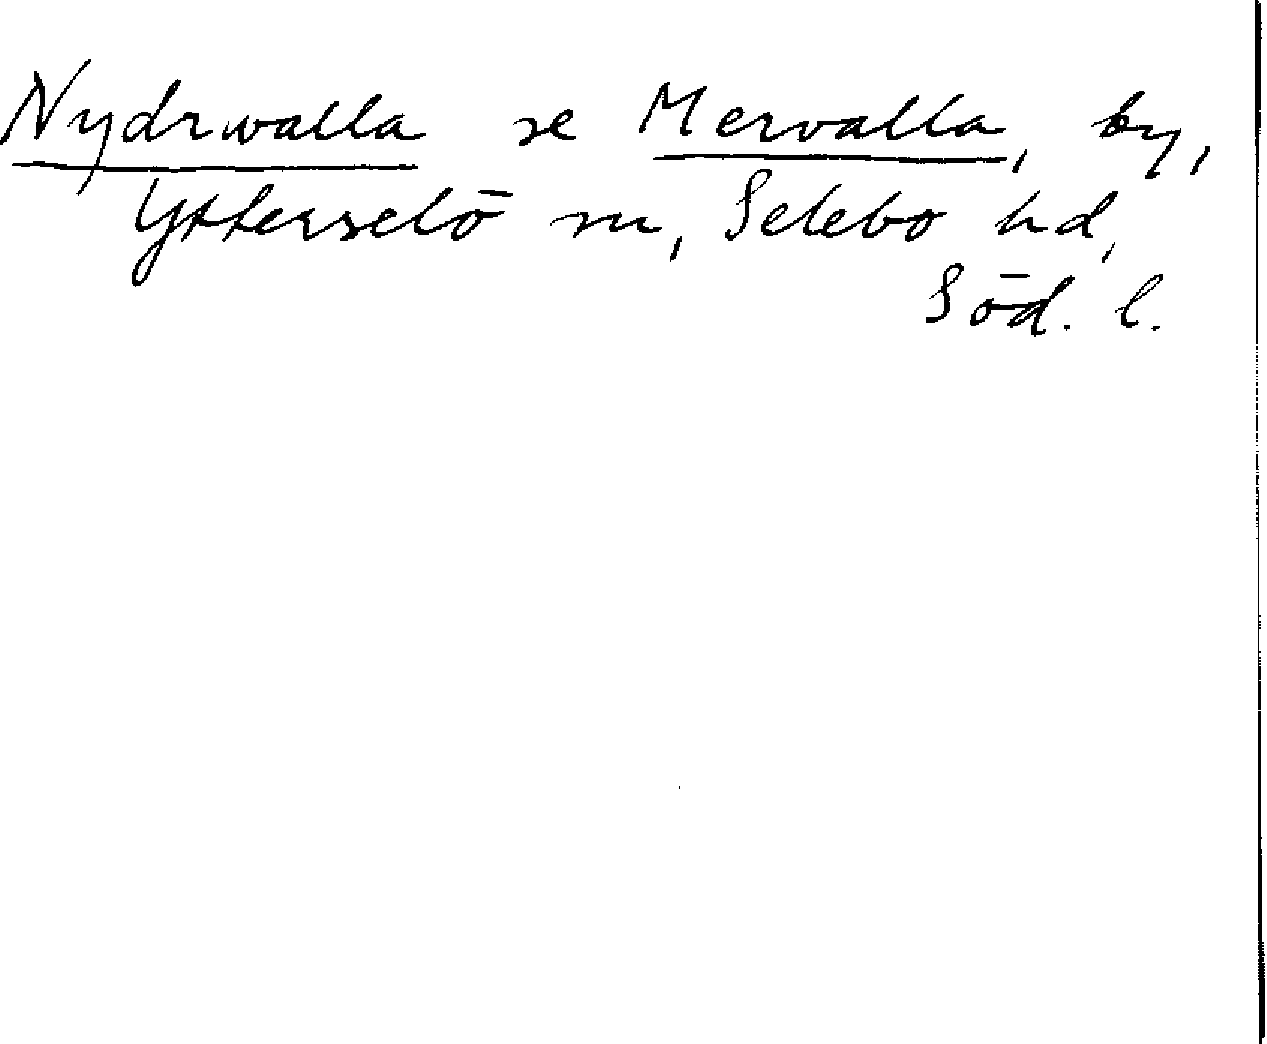 Nydrwalla se Mervalla, by,
Ytterselö sn, Selebo hd,
Söd. l.